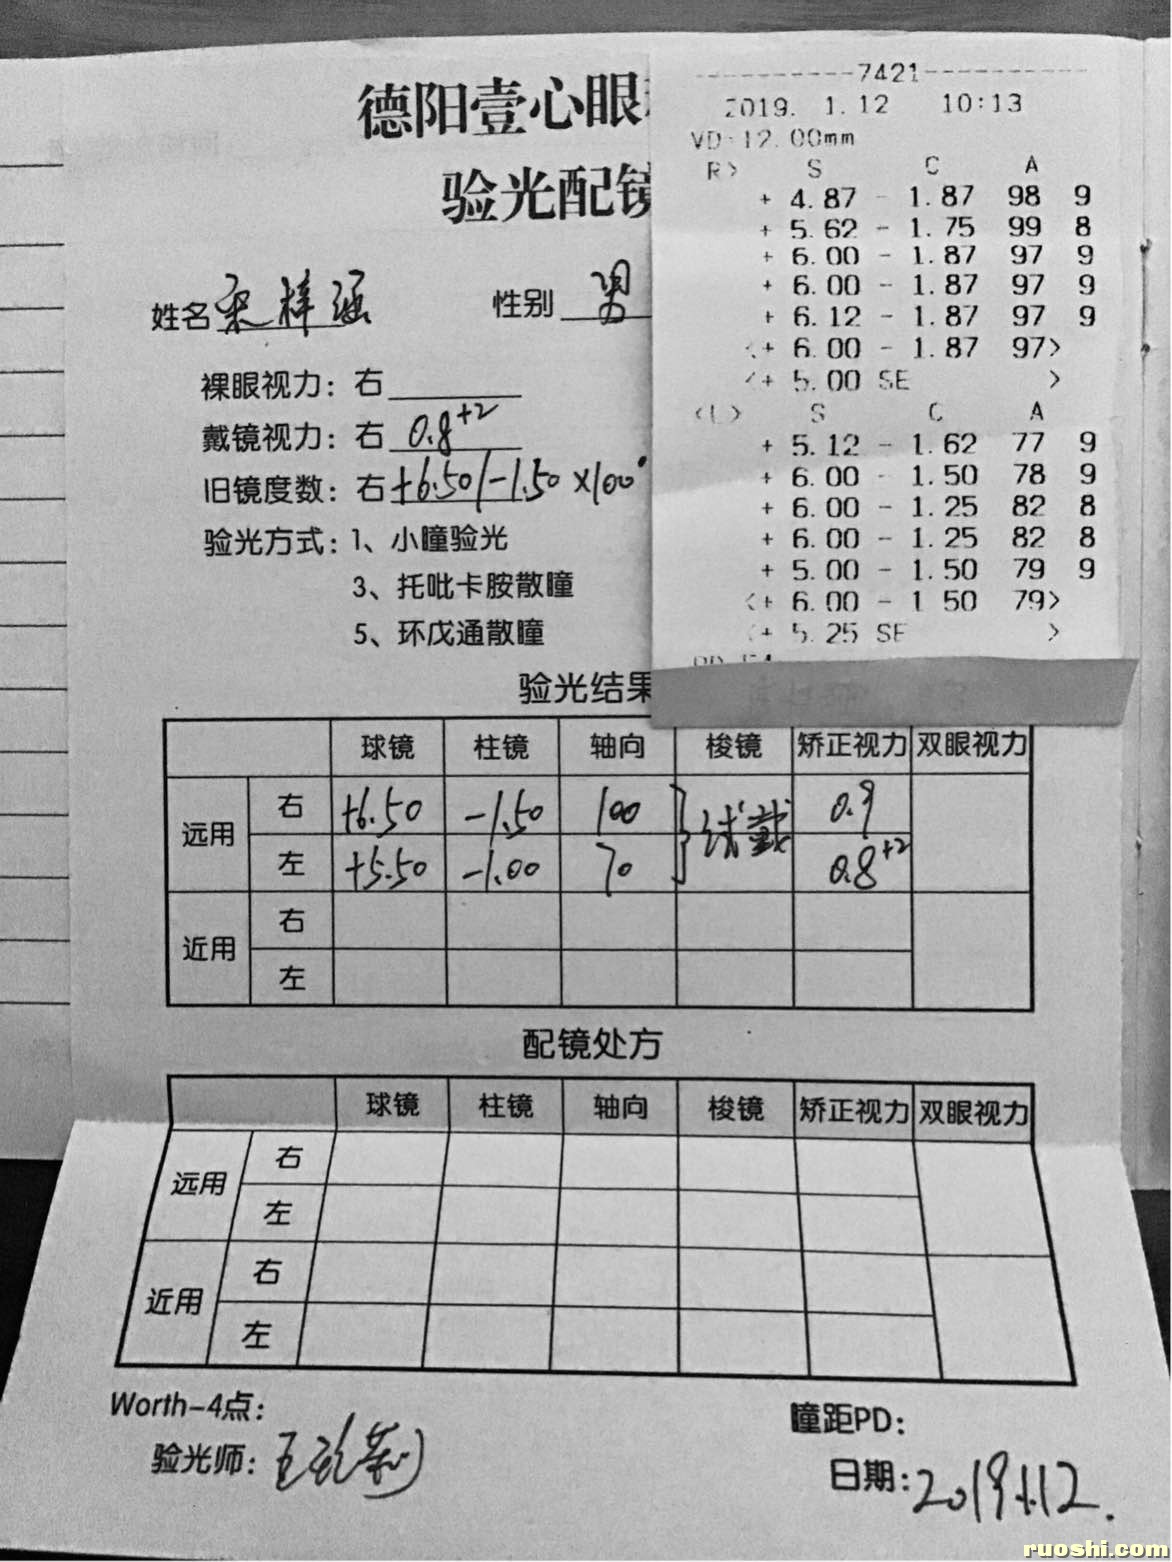 德阳壹心眼
验光配镜
姓名 宋梓涵 性别 男
裸眼视力：右
戴镜视力：右 0.8+2
旧镜度数：右 +6.50/-1.50×100°
验光方式：1、小瞳验光
3、托吡卡胺散瞳
5、环戊通散瞳
----------7421----------
2019. 1.12 10:13
VD 12.00mm
R> S C A
+ 4.87 - 1.87 98 9
+ 5.62 - 1.75 99 8
+ 6.00 - 1.87 97 9
+ 6.00 - 1.87 97 9
+ 6.12 - 1.87 97 9
<+ 6.00 - 1.87 97>
<+ 5.00 SE >
<L> S C A
+ 5.12 - 1.62 77 9
+ 6.00 - 1.50 78 9
+ 6.00 - 1.25 82 8
+ 6.00 - 1.25 82 8
+ 5.00 - 1.50 79 9
<+ 6.00 - 1 50 79>
<+ 5.25 SE >
验光结果
球镜 柱镜 轴向 梭镜 矫正视力 双眼视力
远用 右 +6.50 -1.50 100 试戴 0.9
左 +5.50 -1.00 70 0.8+2
近用 右
左
配镜处方
球镜 柱镜 轴向 梭镜 矫正视力 双眼视力
远用 右
左
近用 右
左
Worth-4点：
瞳距PD：
验光师：
日期：2019.1.12.
ruoshi.com